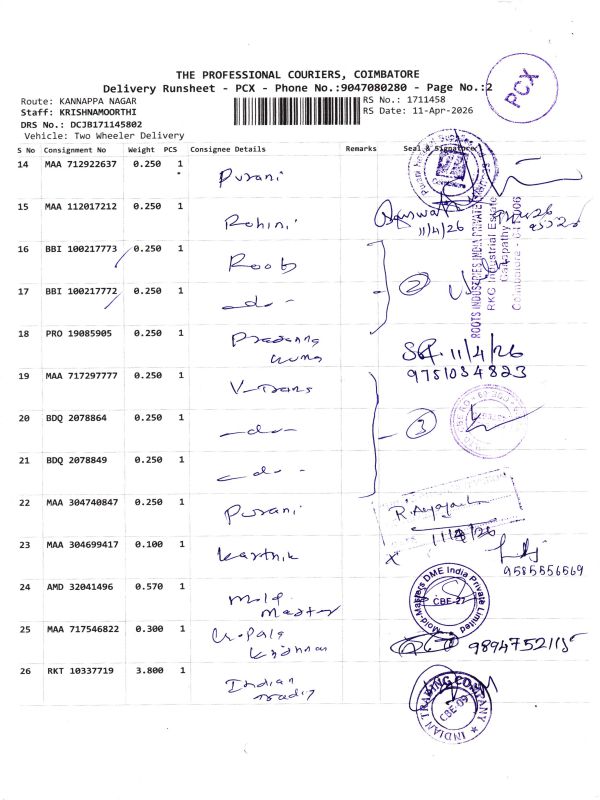 THE PROFESSIONAL COURIERS, COIMBATORE
Delivery Runsheet - PCX - Phone No.:9047080280 - Page No.:2
PCX
Route: KANNAPPA NAGAR
RS No.: 1711458
Staff: KRISHNAMOORTHI
RS Date: 11-Apr-2026
DRS No.: DCJB171145802
Vehicle: Two Wheeler Delivery
S No Consignment No Weight PCS Consignee Details Remarks Seal & Signature
14 MAA 712922637 0.250 1 Purani
15 MAA 112017212 0.250 1 Rohini
11/4/26
16 BBI 100217773 0.250 1 Roots
17 BBI 100217772 0.250 1 -do-
2
ROOTS INDUSTRIES INDIA PRIVATE
RKG Industrial Estate
Ganapathy
Coimbatore - 641 006
18 PRO 19085905 0.250 1 Prasanna
11/4/26
9751034823
19 MAA 717297777 0.250 1 V-Trans
20 BDQ 2078864 0.250 1 -do-
3
21 BDQ 2078849 0.250 1 -do-
22 MAA 304740847 0.250 1 Purani
11/4/26
23 MAA 304699417 0.100 1 Karthik
9585556569
24 AMD 32041496 0.570 1 Mold
Master
Mold-Masters DME India Private Limited
CBE-27
25 MAA 717546822 0.300 1 Gopala
Krishnan
26 RKT 10337719 3.800 1 Indian
Trading
INDIAN TRADING COMPANY
CBE-09